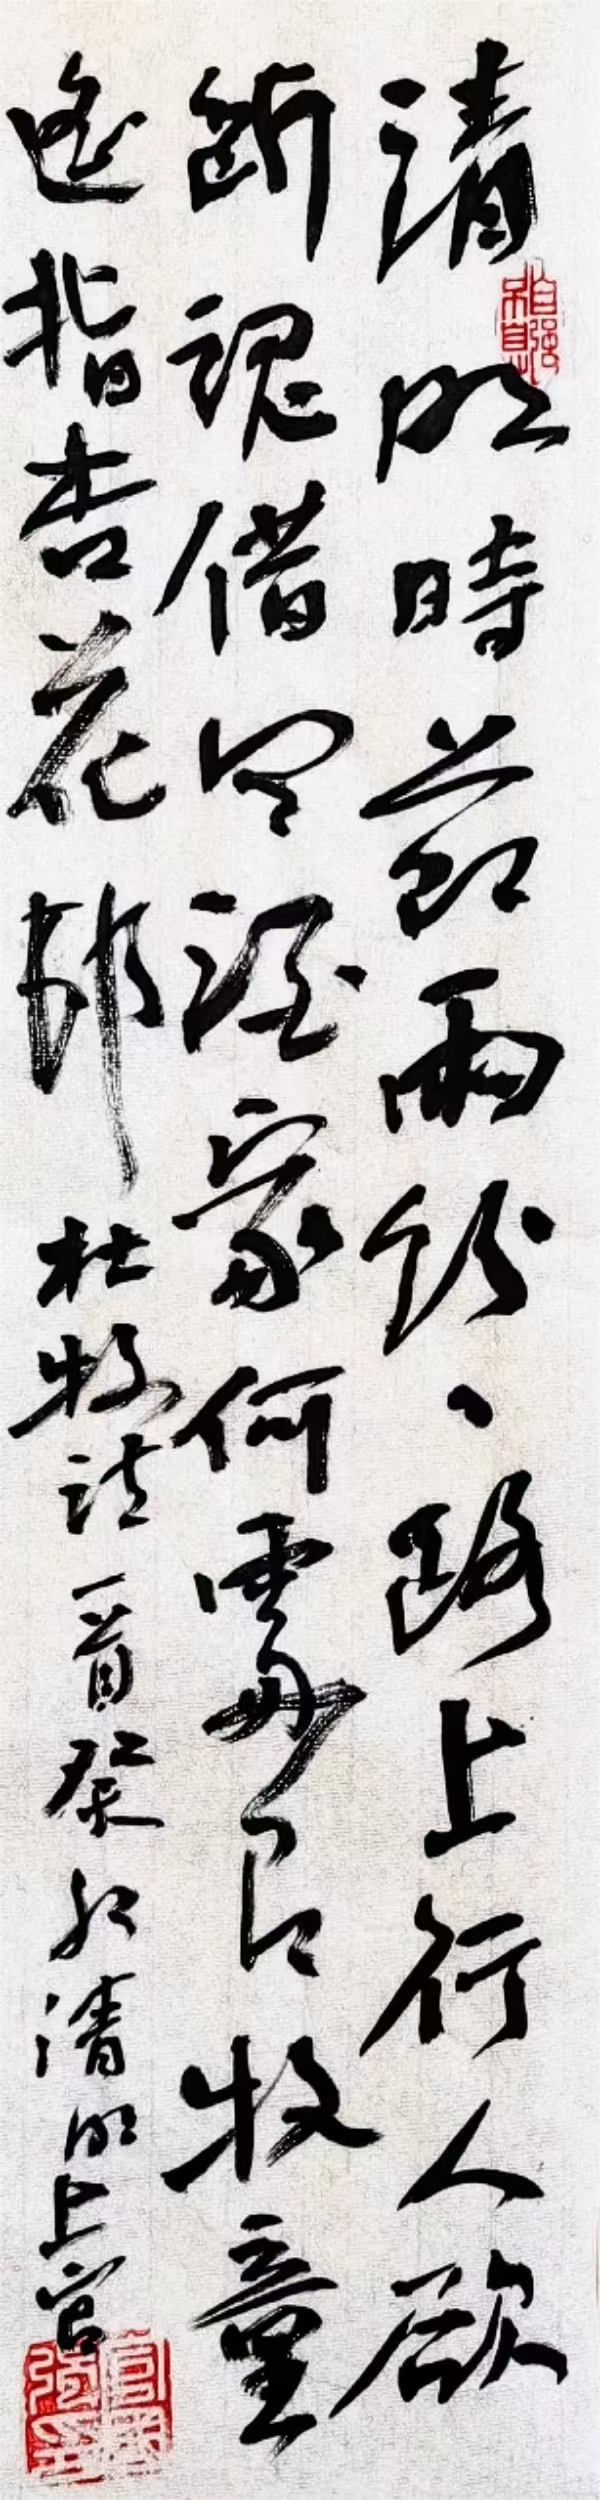 清明時節雨紛、路上行人欲
斷魂借問酒家何處有牧童
遙指杏花邨
杜牧詩一首癸卯清明上官
自強不息